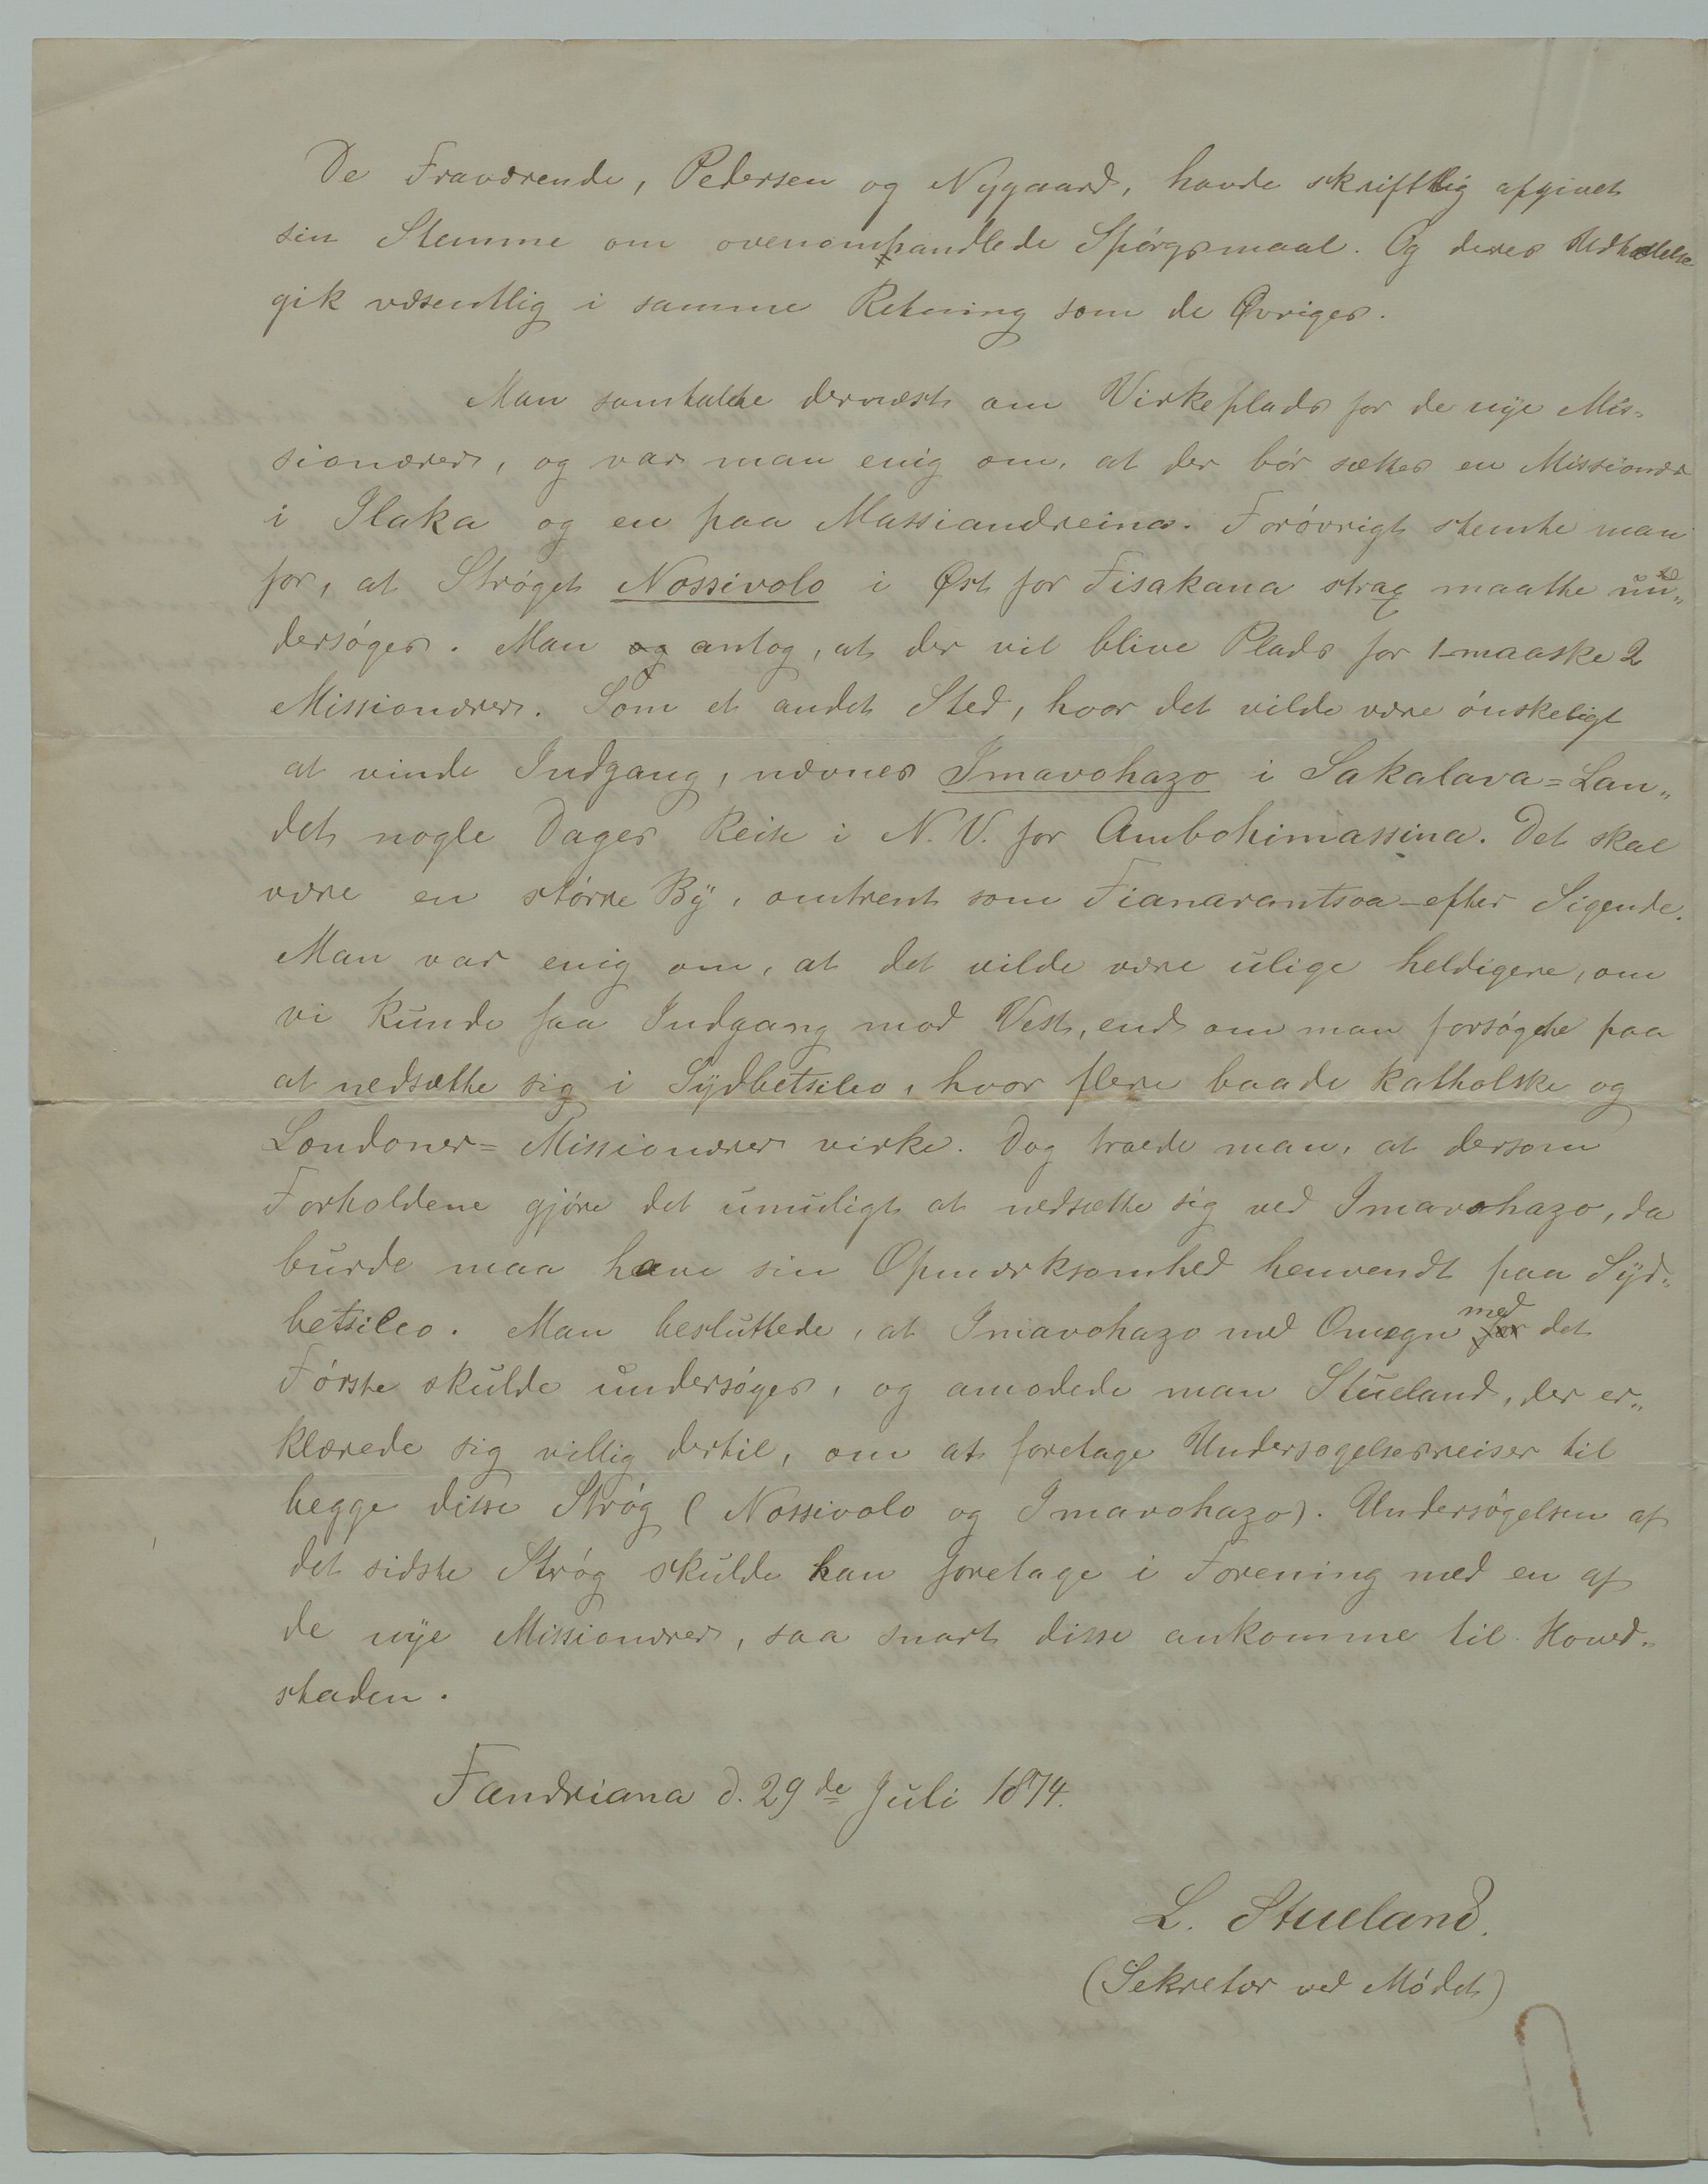 De Fraværende, Pedersen og Nygaard, havde skriftlig afgivet
sin Stemme om ovenomhandlede Spörgsmaal. Og deres Udtalelse
gik væsentlig i samme Retning som de Øvriges.
Man samtalte dernæst om Virkeplads for de nye Mis-
sionærer, og var man enig om, at der bör sættes en Missionær
i Ilaka og en paa Massiandreina. Forövrigt stemte man
for, at Ströget Nossivolo i Øst for Fisakana strax maatte un„
dersöges. Man og antog, at der vil blive Plads for 1-maaske 2
Missionærer. Som et andet Sted, hvor det vilde være önskeligt
at vinde Indgang, nævnes Imavohazo i Sakalava=Lan„
det nogle Dages Reise i N.V. for Ambohimassina. Det skal
være en större By, omtrent som Fianarantsoa-efter Sigende.
Man var enig om, at det vilde være ulige heldigere, om
vi kunde faa Indgang mod Vest, end om man forsögte paa
at nedsætte sig i Sydbetsileo, hvor flere baade katholske og
Londoner=Missionærer virke. Dog troede man, at dersom
Forholdene gjöre det umuligt at nedsætte sig ved Imavohazo, da
burde maa have sin Opmærksomhed henvendt paa Syd-
betsileo. Man besluttede, at Imavohazo med Omegn for med det
Förste skulde undersöges, og anmodede man Stueland, der er„
klærede sig villig dertil, om at foretage Undersogelsesreiser til
begge disse Strög (Nossivolo og Imavohazo). Undersögelsen af
det sidste Strög skulde han foretage i Forening med en af
de nye Missionærer, saa snart disse ankomme til Hoved-
staden.
Fandriana d. 29de Juli 1874.
L. Stueland.
(Sekretær ved Mödet)